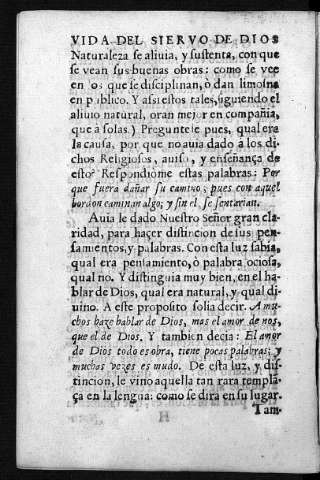 VIDA DEL SIERVO DE DIOS
Naturaleza se aliuia, y sustenta, con que
se vean sus buenas obras: como se vee
en los que se disciplinan, ò dan limosna
en publico. Y assi estos tales, siguiendo el
aliuio natural, oran mejor en compañia,
que a solas) Preguntele pues, qual era
la causa, por que no auia dado à los di-
chos Religiosos, auiso, y enseñança de
esto? Respondiome estas palabras: Por
que fuera dañar su camino; pues con aquel
bordon caminan algo; y sin el, se sentarian.
Auia le dado Nuestro Señor gran cla-
ridad, para hacer distincion de sus pen-
samientos, y palabras. Con esta luz sabia,
qual era pensamiento, ò palabra ociosa,
qual no. Y distinguia muy bien, en el ha-
blar de Dios, qual era natural, y qual di-
uino. A este proposito solia decir. A mu-
chos haze hablar de Dios, mas el amor de nos,
que el de Dios, Y tambien decia: El amor
de Dios todo es obra, tiene pocas palabras; y
muchas vezes es mudo. De esta luz, y dis-
tincion, le vino aquella tan rara templã-
ça en la lengua: como se dira en su lugar.
Tam-